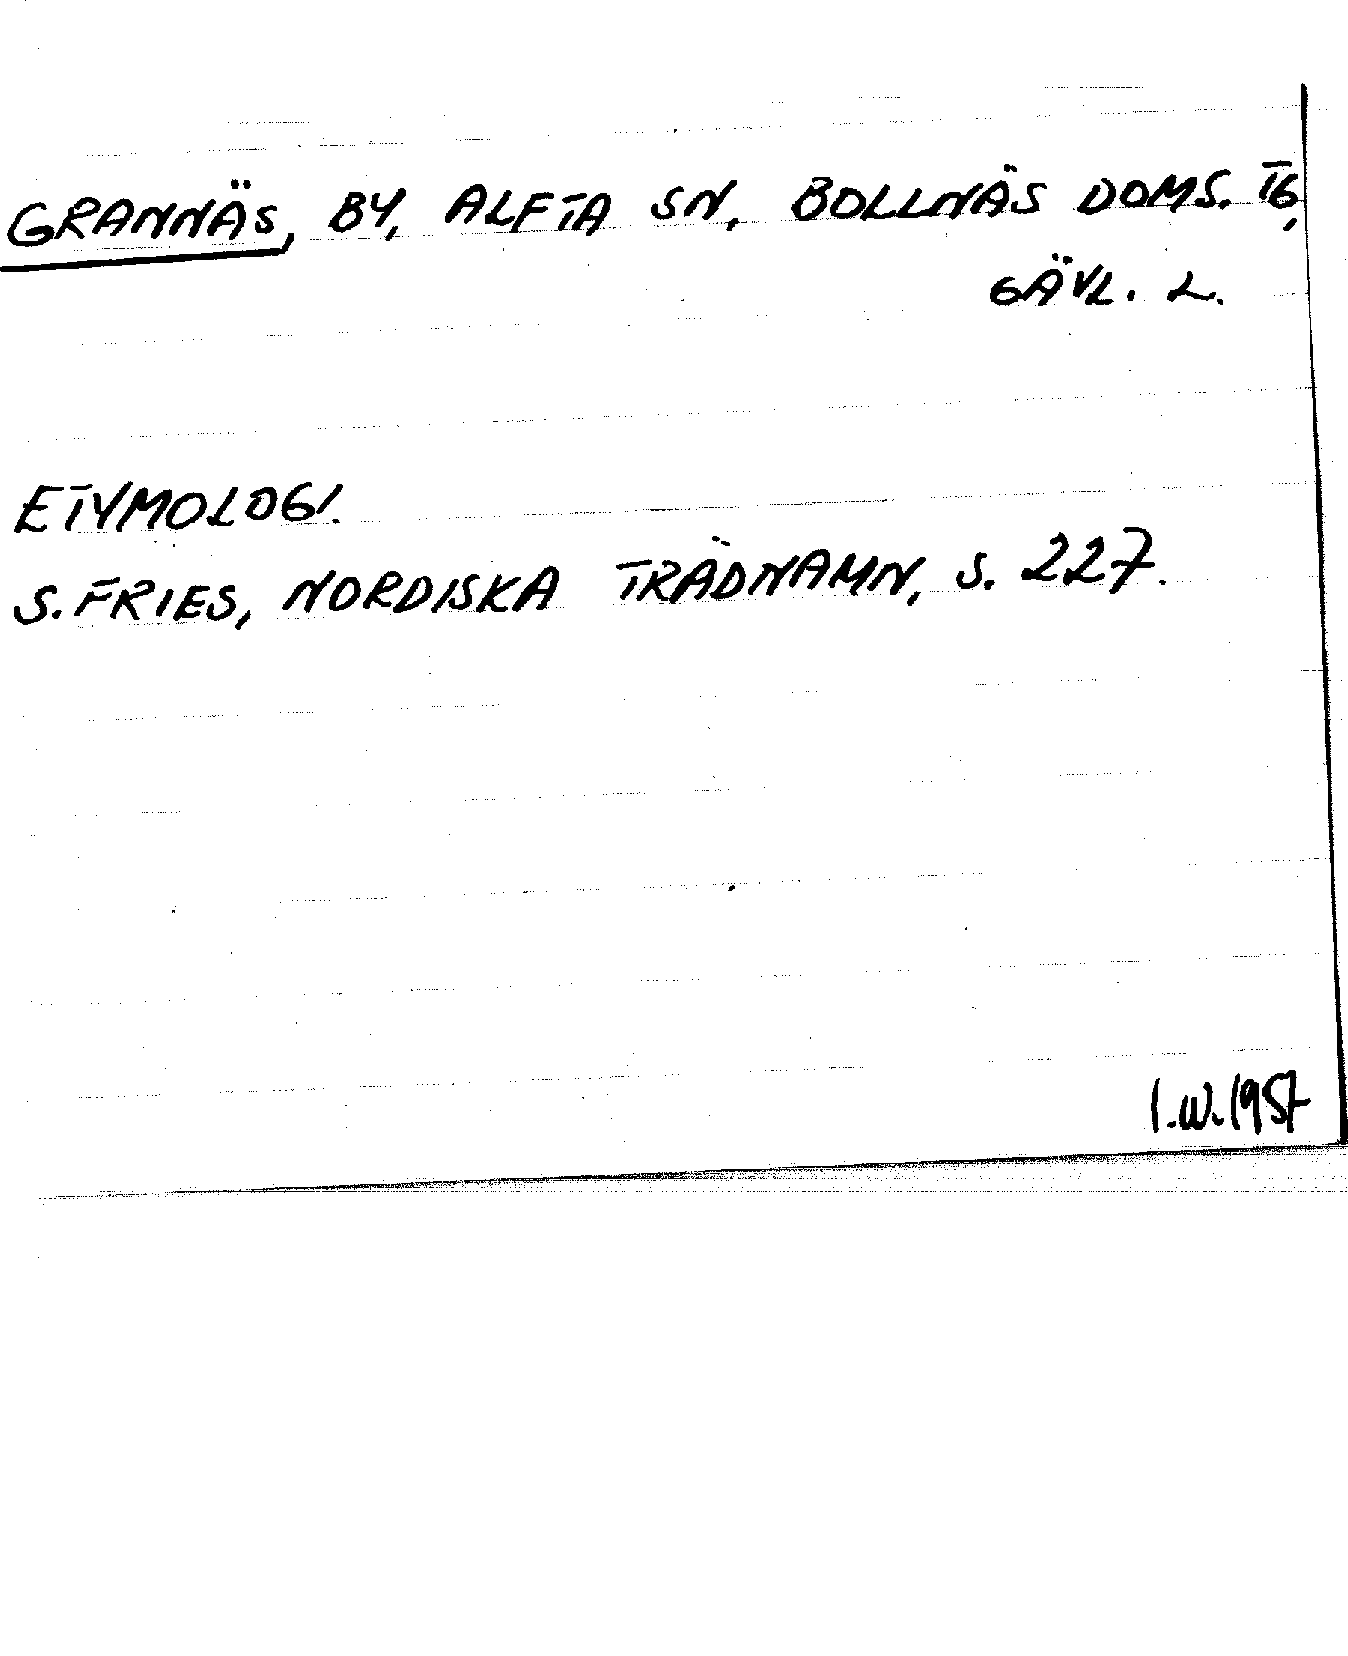 GRANNÄS, BY, ALFTA SN, BOLLNÄS DOMS. TG,
GÄVL. L.
ETYMOLOGI.
S. FRIES, NORDISKA TRÄDNAMN, S. 227.
I.W. 1957